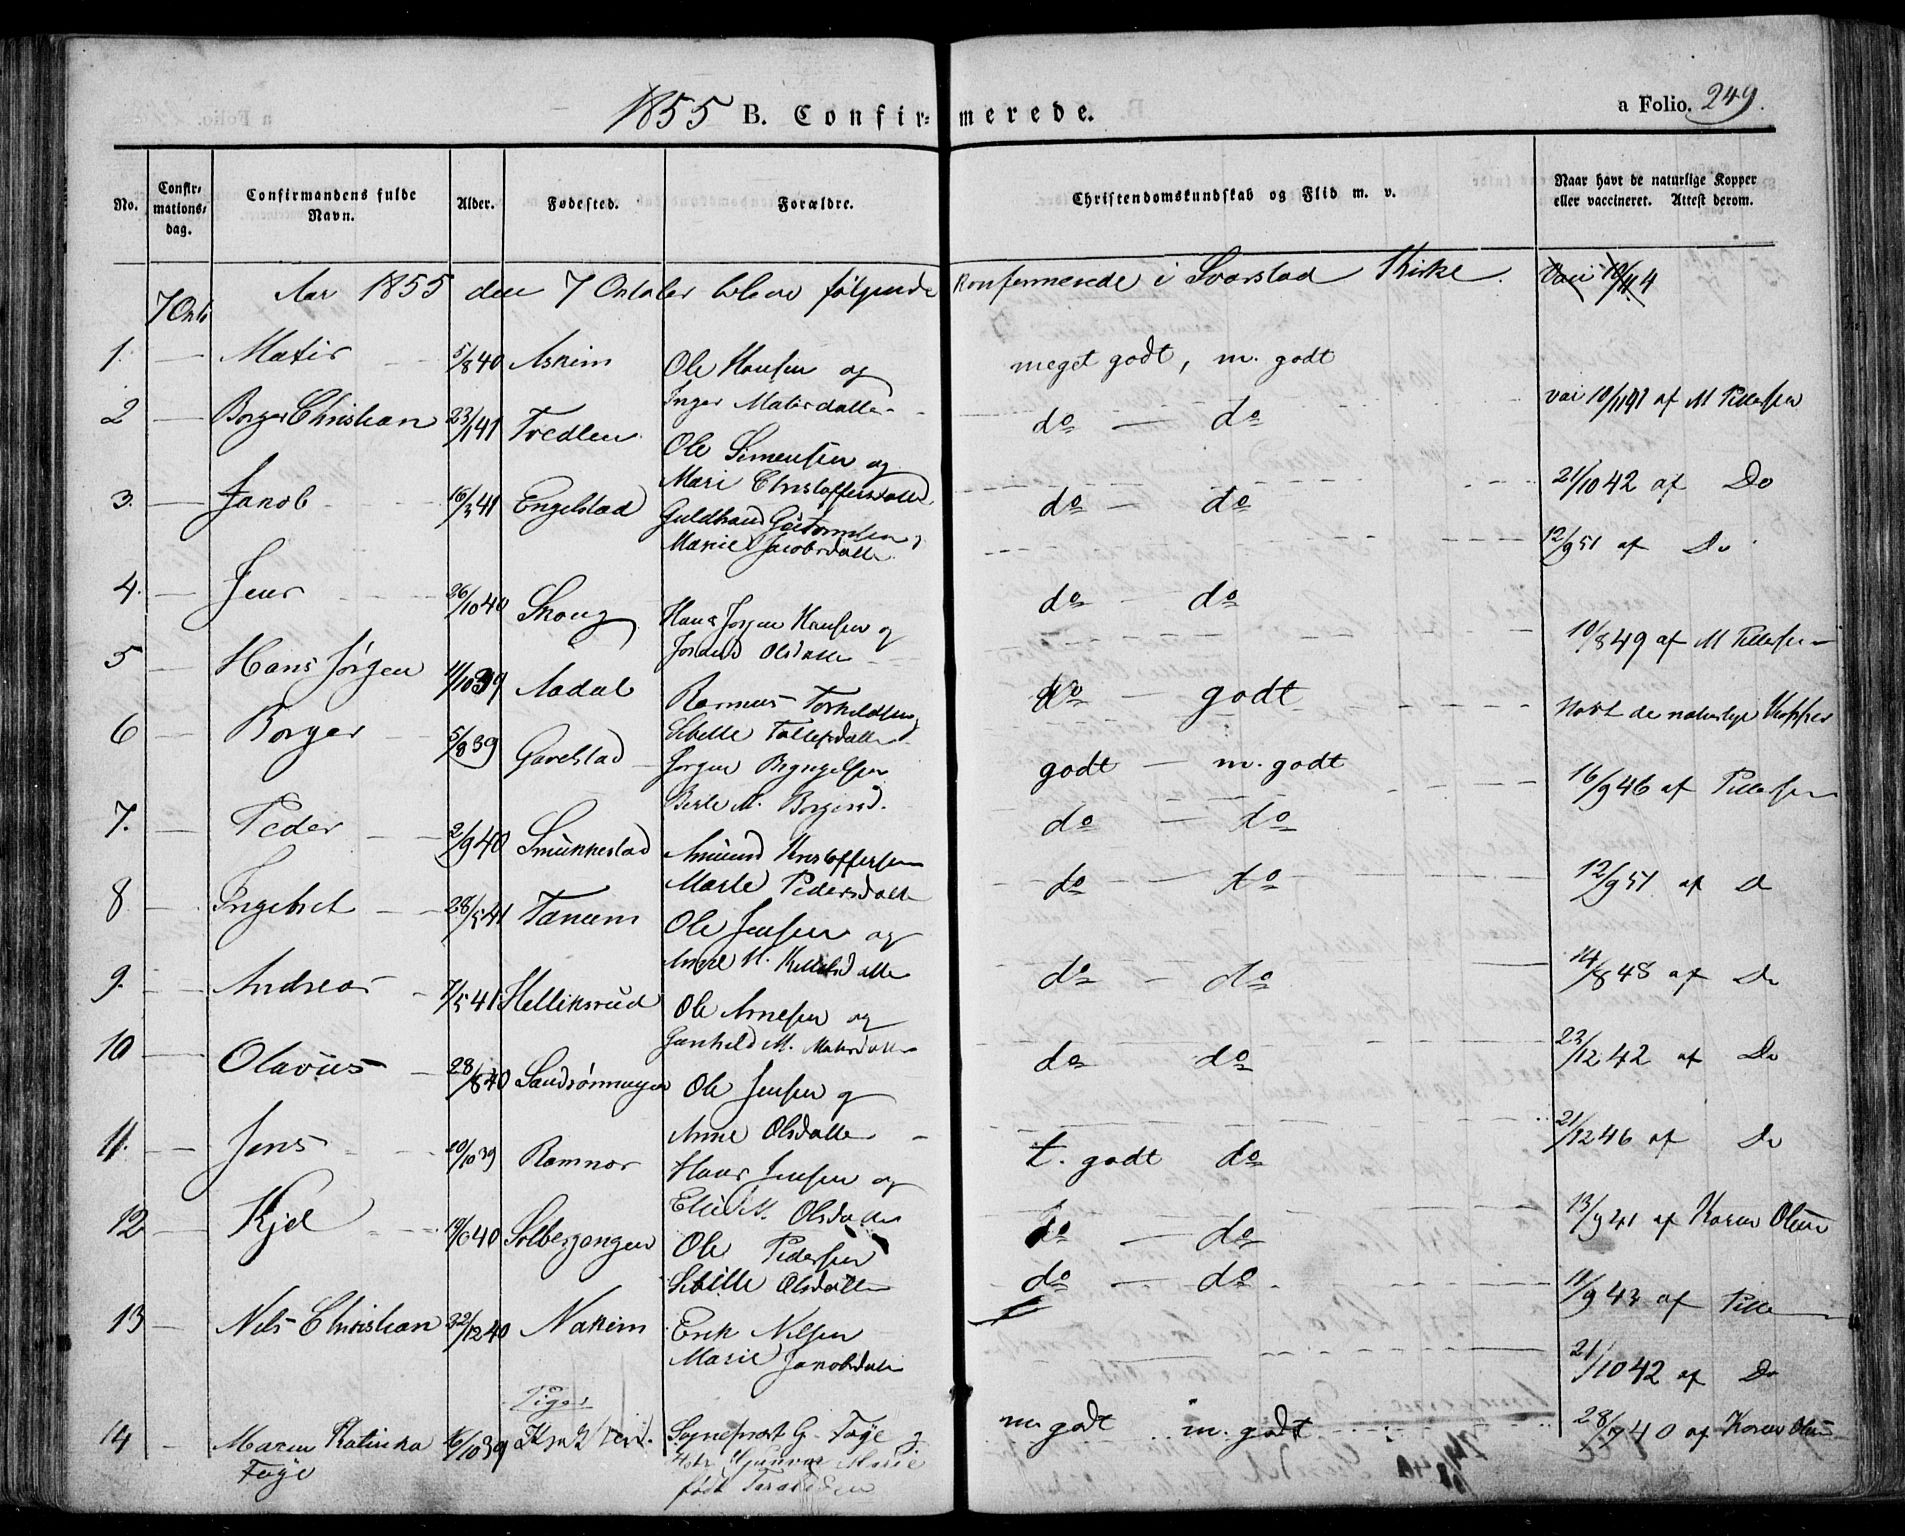 1855 B. Confirmerede.
a Folio. 249.
No. Confirmationsdag. Confirmandens fulde Navn. Alder. Fødested. Forældre. Christendomskundskab og Flid m. v. Naar havt de naturlige Kopper eller vaccineret. Attest derom.
7 Octb Aar 1855 den 7 Octobr bleve følgende konfirmerede i Svarstad Kirke. vacc 10/11 4
1. — Mathis 5/8 40 Askim Ole Hansen og meget godt, m. godt
Inger Mathisdatter vac 10/11 41 af M Pettersen
2 — Borger Christian 23/1 41 Tredlen Ole Simensen og do — do
Mari Christoffersdatter 21/10 42 af Do
3. — Jacob 16/3 41 Engelstad Guldbrand Guttormsen do — do
Marie Jacobsdatter 12/9 51 af Do
4. — Jens 26/10 40 Skoug Hans Jørgen Hansen og do — do
Olsdatter 10/8 49 af M Pettersen
5 — Hans Jørgen 11/10 39 Aadal Rasmus Torkildsen do — godt
Sibelle Tollefsdatter Havt de naturlige Kopper
6 — Borger 5/8 39 Gavelstad Jørgen godt — m. godt
Berte M. Borgersd. 16/9 46 af Pettersen
7. — Peder 2/9 40 Smukkestad Amund Kristoffersen do — do
Marte Pedersdatter 12/9 51 af D
8 — Ingebret 28/5 41 Tanum Ole Jensen og do — do
Anne M. Kittilsdatter 14/8 48 af Do
9. — Andreas 7/5 41 Helliksrud Ole Arnesen og do — do
Gunhild M. Mathisdatter 23/12 42 af Do
10 — Olavus 28/8 40 Ole Jensen og do do
Anne Olsdatter 21/12 46 af Do
11. — Jens 20/10 39 Ramnas Hans Jensen og t. godt do
M. Olsdatter 13/9 41 af Karen Olsen
12 — Kjel 19/6 40 Solbergangen Ole Pedersen do — do
Sibille Olsdatter 11/9 43 af Pette
13 — Nils Christian 22/12 40 Nakim Erik Nilsen do — do
Marie Jakobsdatter 21/10 42 af Do
Piger
14 — Maren Katinka 16/10 39 Sognepræst G. Faye og m. godt m. godt 28/7 40 af Karen Olsen
Faye Marie
født